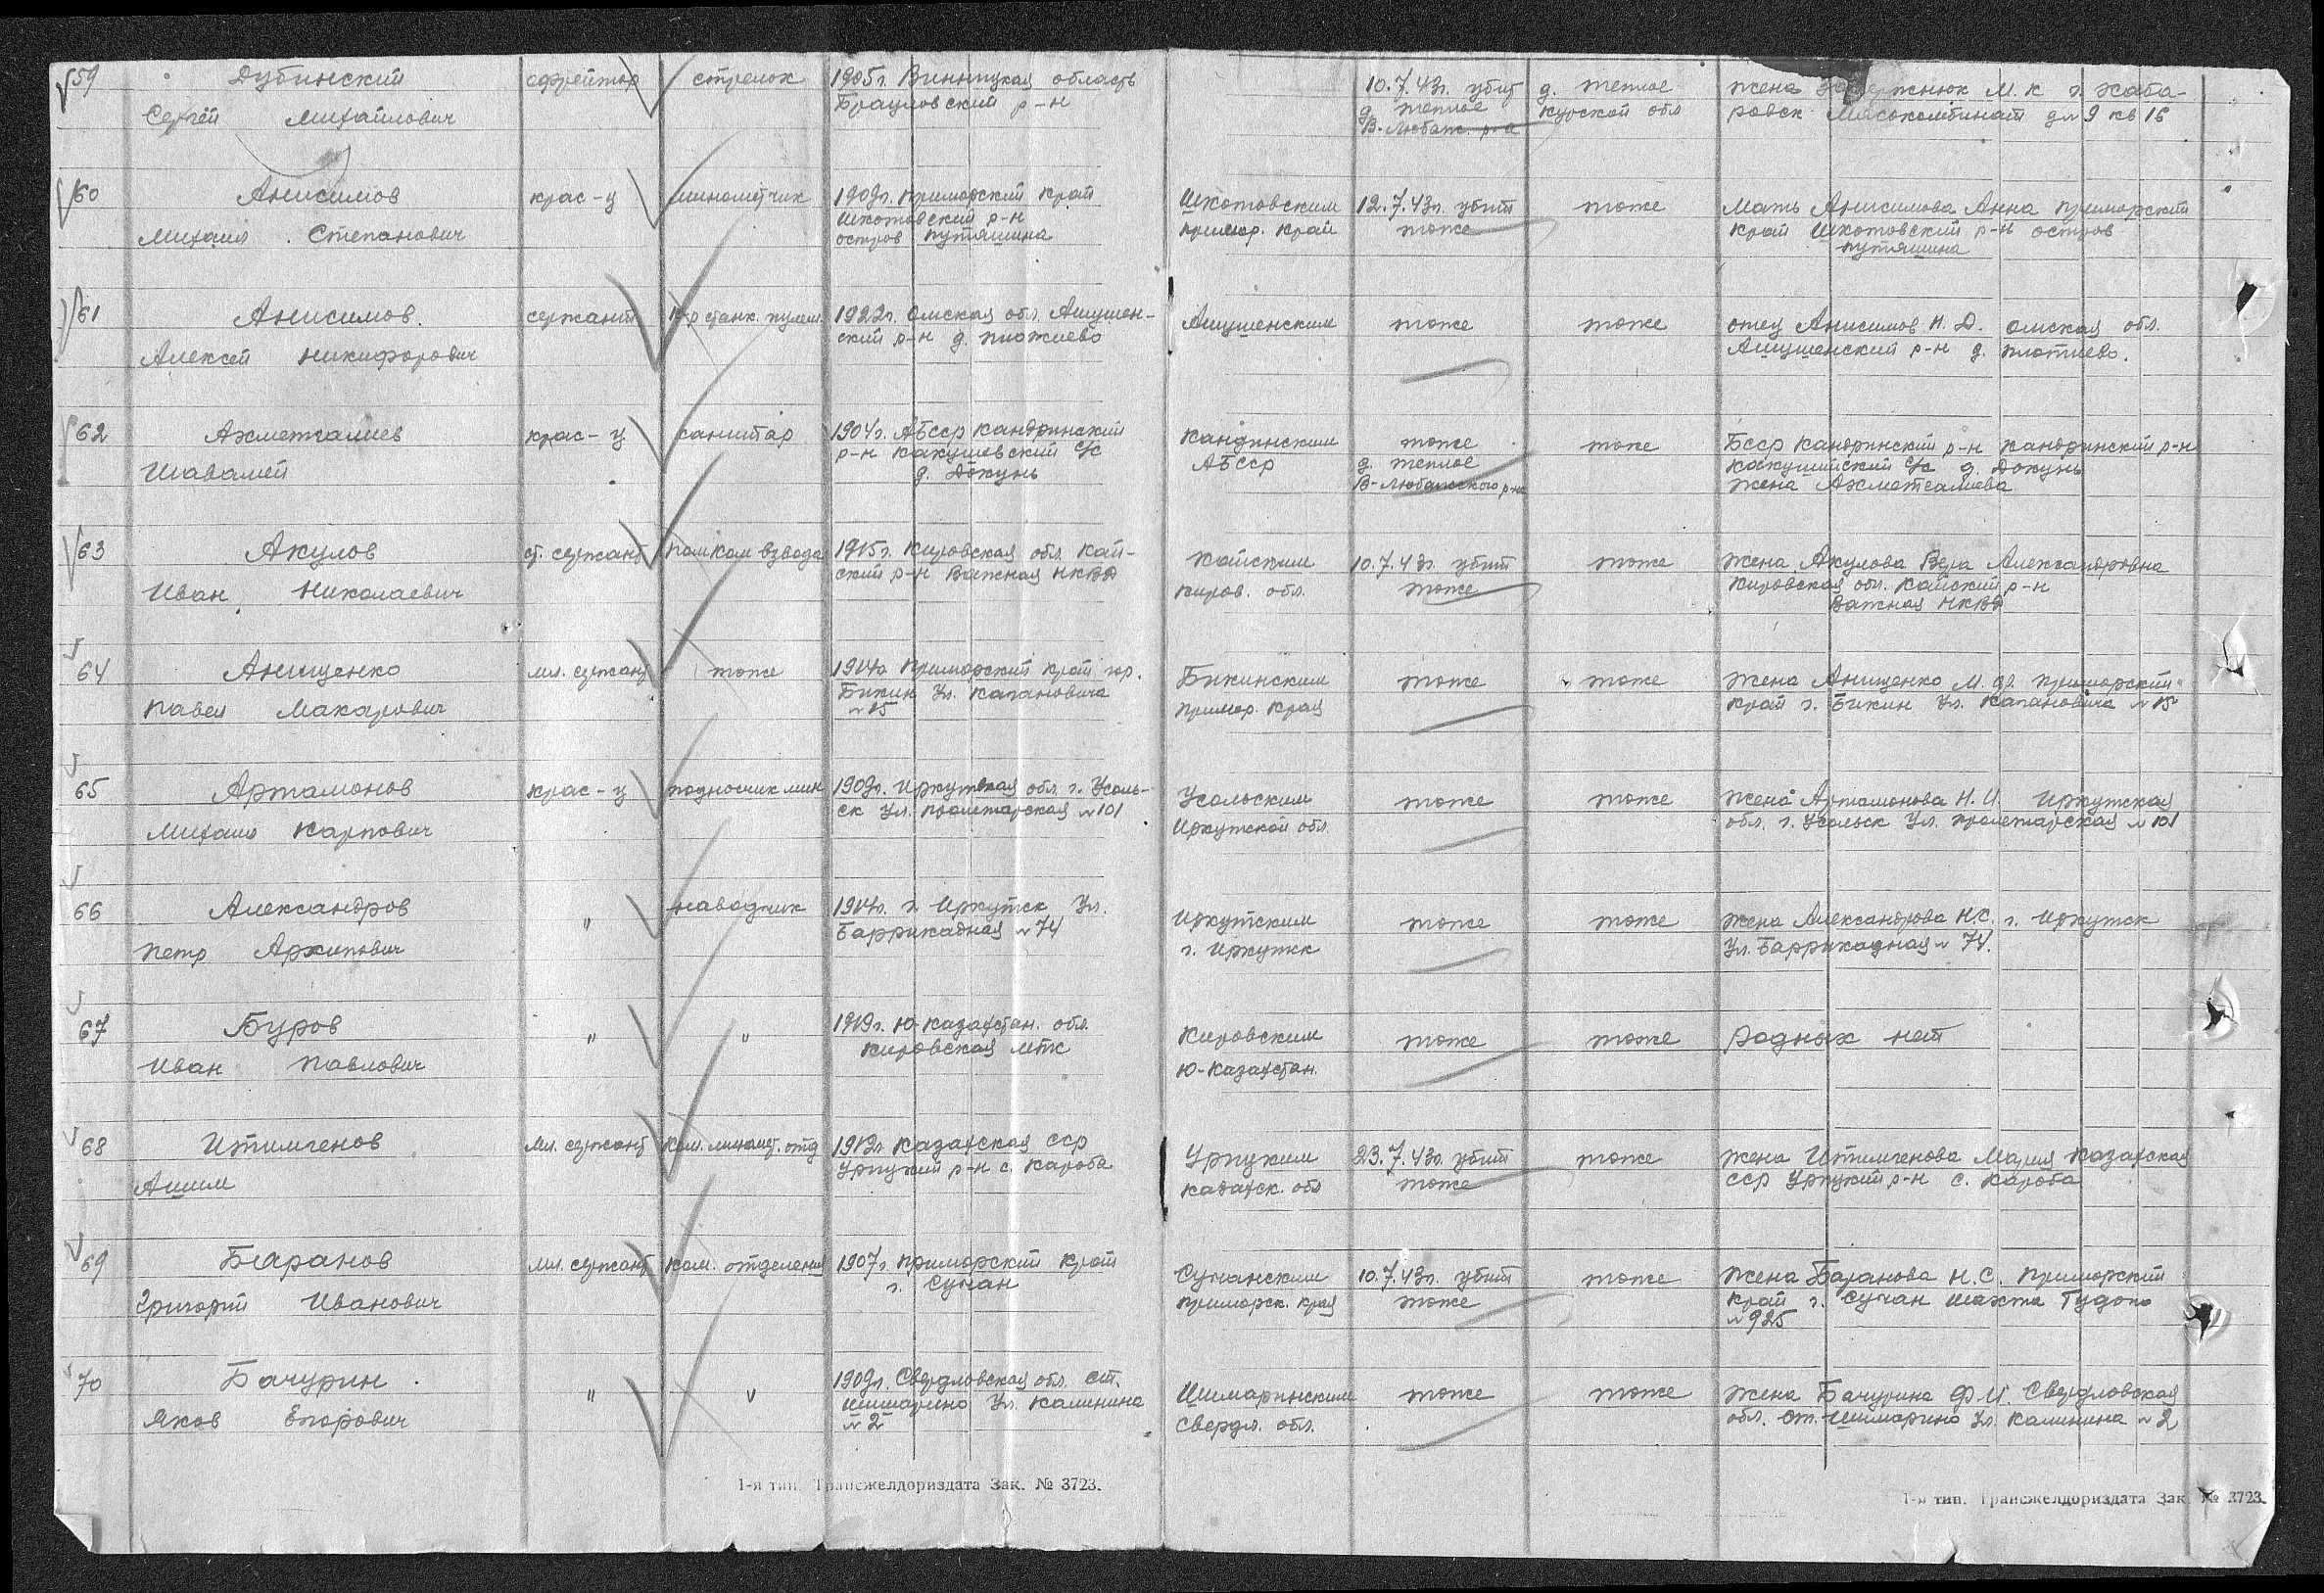 59 Дубинский ефрейтор стрелок 1905г. Винницкая область 10.7.43г. убит д. теплое жена М.К г. Хаба-
Сергей Михайлович Браиловский р-н д. теплое Курской обл ровск Мясокомбинат дом 9 кв 16
В-Любаж. р-а
60 Анисимов крас-ц минометчик 1909г. Приморский край Шкотовским 12.7.43г. убит тоже Мать Анисимова Анна Приморский
Михаил Степанович Шкотовский р-н остров Путятина примор. край тоже край Шкотовский р-н остров
Путятина
61 Анисимов сержант к-р станк. пулем. 1922г. Омская обл. Аиушен- Аиушенским тоже тоже отец Анисимов Н.Д. Омская обл.
Алексей Никифорович ский р-н д. Аиушенский р-н д.
62 Ахметгалиев крас-ц санитар 1904г. АБССР Кандринский Кандинским тоже тоже БССР Кандринский р-н Кандринский р-н
Шавалей р-н Какушевский с/с АБССР д. теплое с/с д. Докунь
д. Докунь В-Любажского р-на жена Ахметгалиева
63 Акулов ст. сержант помком взвода 1915г. Кировская обл. Кай- Кайским 10.7.43г. убит тоже жена Акулова Вера Александровна
Иван Николаевич ский р-н Важная НКВД Киров. обл. тоже Кировская обл. Кайский р-н
Важная НКВД
64 Анищенко мл. сержант тоже 1914г. Приморский край гор. Бикинским тоже тоже жена Анищенко М. Приморский
Павел Макарович Бикин Ул. Кагановича примор. края край г. Бикин Ул. Кагановича №15
№15
65 Артамонов крас-ц подносчик мин 1909г. Иркутская обл. г. Усоль- Усольским тоже тоже жена Артамонова Н.И. Иркутская
Михаил Карпович ск Ул. Пролетарская №101 Иркутской обл. обл. г. Усольск Ул. Пролетарская №101
66 Александров " наводчик 1914г. г. Иркутск Ул. Иркутским тоже тоже жена Александрова Н.С. г. Иркутск
Петр Архипович Баррикадная №74 г. Иркутск Ул. Баррикадная №74.
67 Буров " " 1919г. Ю-Казахстан. обл. Кировским тоже тоже родных нет
Иван Павлович Кировская мтс Ю-Казахстан.
68 Итимгенов мл. сержант ком. миномет. отд 1913г. Казахская сср Урицким 23.7.43г. убит тоже жена Итимгенова Мария Казахская
Ашим Урицкий р-н с. Кароба Казахск. обл тоже сср Урицкий р-н с. Кароба
69 Баранов мл. сержант ком. отделения 1907г. Приморский край Сучанским 10.7.43г. убит тоже жена Баранова Н.С. Приморский
Григорий Иванович г. Сучан приморск. края тоже край г. Сучан шахта
№925
70 Бачурин " " 1909г. Свердловская обл. ст. Шимаринским тоже тоже жена Бачурина Ф.И. Свердловская
Яков Егорович Шимарино Ул. Калинина Свердл. обл. обл. ст. Шимарино Ул. Калинина №2
№2
1-я тип. Трансжелдориздата Зак. № 3723. 1-я тип. Трансжелдориздата Зак. № 3723.